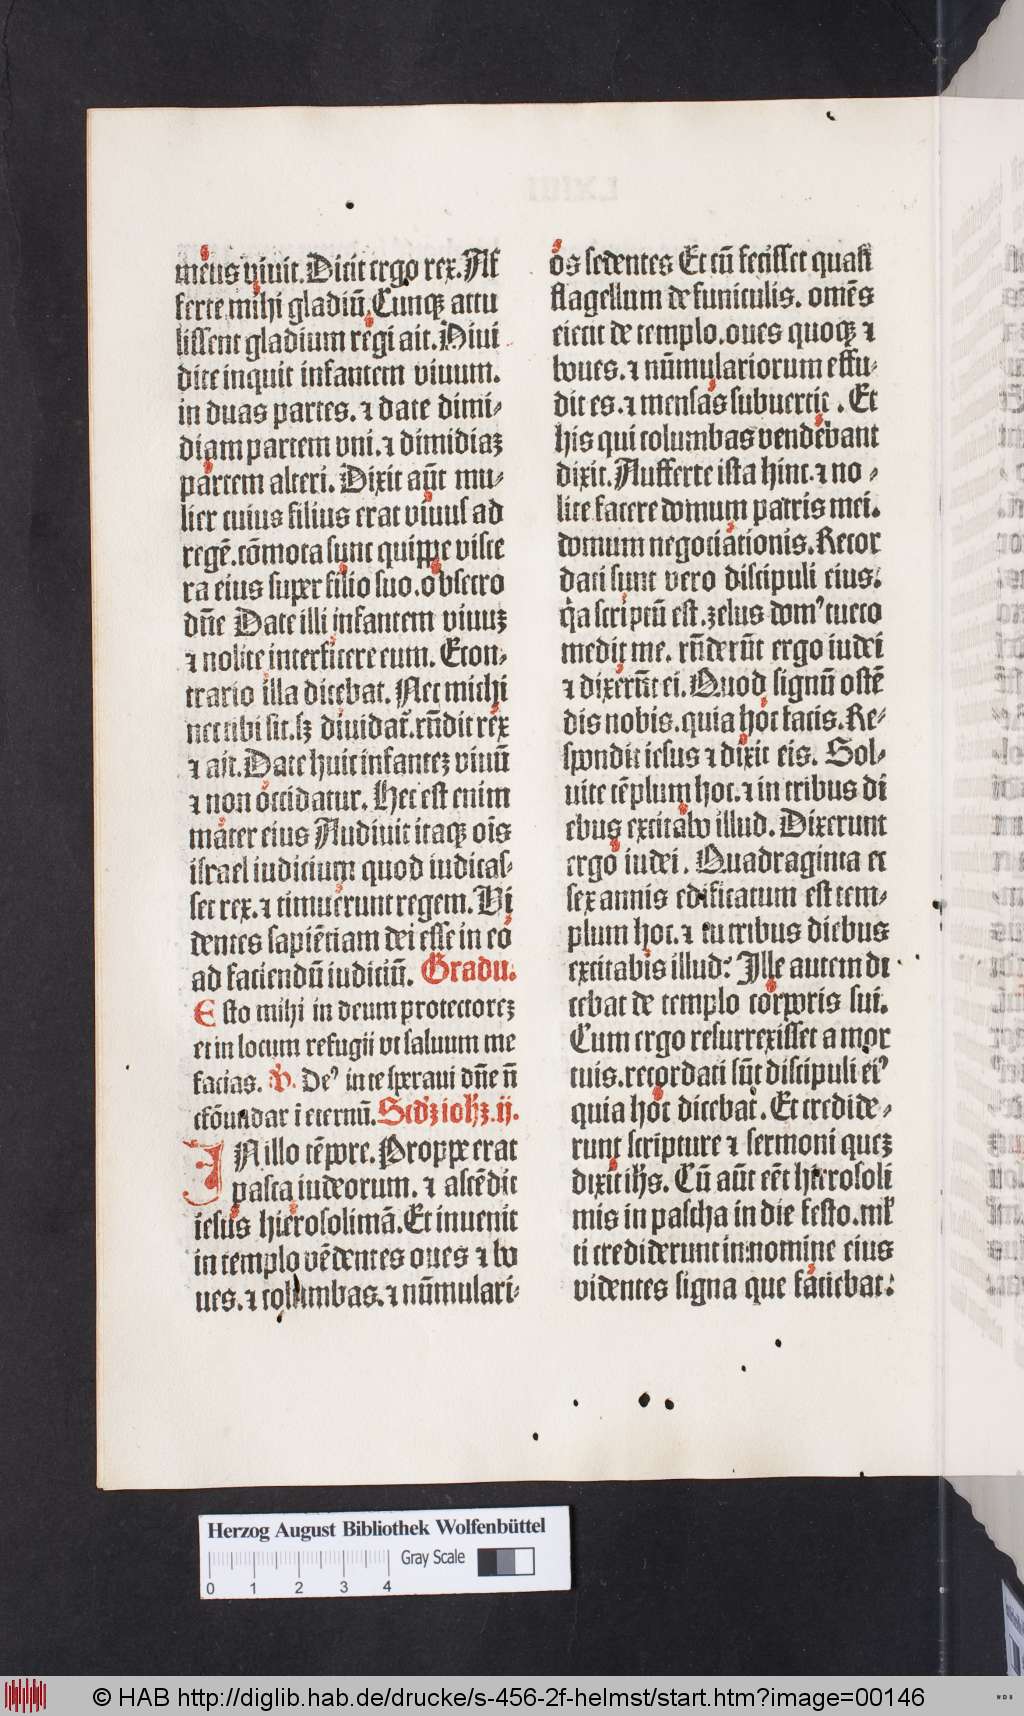 meus viuit. Dicit ergo rex. Af
ferte mihi gladiū. Cunqꝫ attu
lissent gladium regi ait. Diui
dite inquit infantem viuum.
in duas partes. ⁊ date dimi-
diam partem vni. ⁊ dimidiaꝫ
partem alteri. Dixit aūt mu-
lier cuius filius erat viuus ad
regē. cōmota sunt quippe visce
ra eius super filio suo. obsecro
dn̄e Date illi infantem viuuꝫ
⁊ nolite interficere eum. Econ-
trario illa dicebat. Nec michi
nec tibi sit. sꝫ diuidat̄. rn̄dit rex
⁊ ait. Date huic infanteꝫ viuū
⁊ non occidatur. Hec est enim
mater eius Audiuit itaqꝫ oīs
israel iudicium quod iudicas-
set rex. ⁊ timuerunt regem. Vi
dentes sapiētiam dei esse in eo
ad faciendū iudiciū. Gradu.
Esto mihi in deum protectoreꝫ
et in locum refugii vt saluum me
facias. V. Deꝰ in te speraui dn̄e n̄
cōfundar ī eternū. Scdꝫ iohꝫ. ij.
IN illo tēpore. Proppe erat
pasca iudeorum. ⁊ ascēdit
iesus hierosolimā. Et inuenit
in templo vēdentes oues ⁊ bo
ues. ⁊ columbas. ⁊ nūmulari-
os sedentes Et cū fecisset quasi
flagellum de funiculis. omēs
eiecit de templo. oues quoqꝫ ⁊
boues. ⁊ nūmulariorum effu-
dit es. ⁊ mensas subuertit. Et
his qui columbas vendebant
dixit. Aufferte ista hinc. ⁊ no-
lite facere domum patris mei.
domum negociationis. Recor
dati sunt vero discipuli eius.
q̄a scriptū est. zelus domꝰ tue co
medit me. rn̄derūt ergo iudei
⁊ dixerūt ei. Quod signū ostē
dis nobis. quia hoc facis. Re-
spondit iesus ⁊ dixit eis. Sol-
uite tēplum hoc. ⁊ in tribus di
ebus excitabo illud. Dixerunt
ergo iudei. Quadraginta et
sex annis edificatum est tem-
plum hoc. ⁊ tu tribus diebus
excitabis illud: Ille autem di
cebat de templo corporis sui.
Cum ergo resurrexisset a mor
tuis. recordati sūt discipuli eiꝰ
quia hoc dicebat. Et credide-
runt scripture ⁊ sermoni queꝫ
dixit ihs. Cū aūt eēt hierosoli
mis in pascha in die festo. ml̄
ti crediderunt in nomine eius
videntes signa que faciebat.
Herzog August Bibliothek Wolfenbüttel
0 1 2 3 4 Gray Scale
© HAB http://diglib.hab.de/drucke/s-456-2f-helmst/start.htm?image=00146